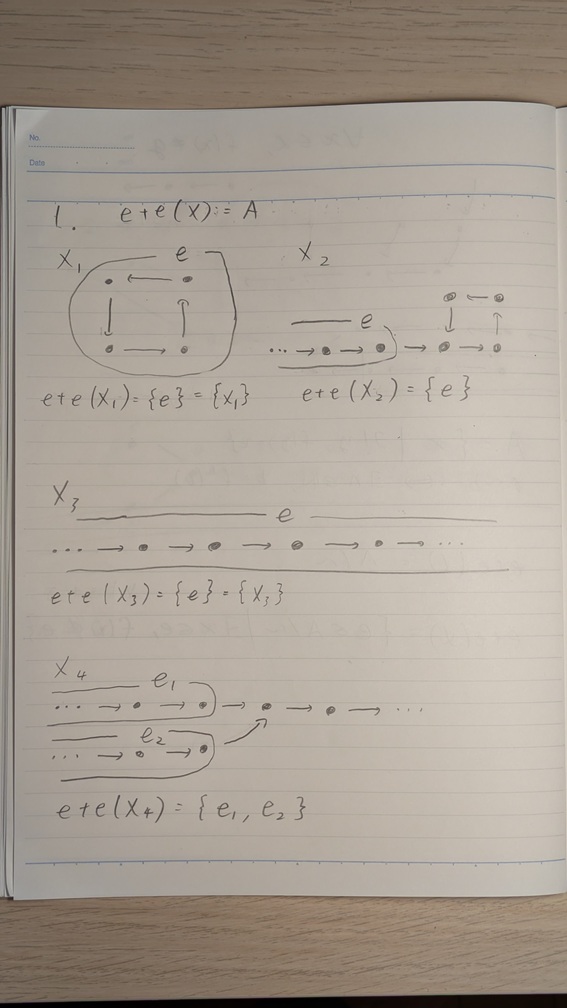 No.
Date
1. e+e(X):= A
X₁ e X₂
e
... → • → • → • → •
e+e(X₁)={e}={X₁} e+e(X₂)={e}
X₃
e
... → • → • → • → • → ...
e+e(X₃)={e}={X₃}
X₄
e₁
... → • → • → • → • → ...
e₂
... → • → •
e+e(X₄)={e₁, e₂}